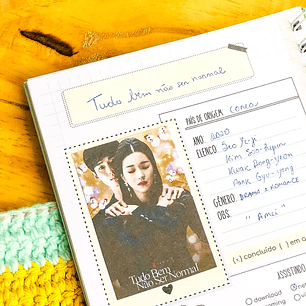 Tudo bem não ser normal
PAÍS DE ORIGEM: Coreia
ANO: 2020
ELENCO: Seo Ye-ji
Kim Soo-hyun
Kwak Dong-yeon
Park Gyu-young
GÊNERO: DRAMA e ROMANCE
OBS: "Amei"
Tudo Bem
Não Ser Normal
(.) concluído ( ) em
ASSISTINDO
download
online